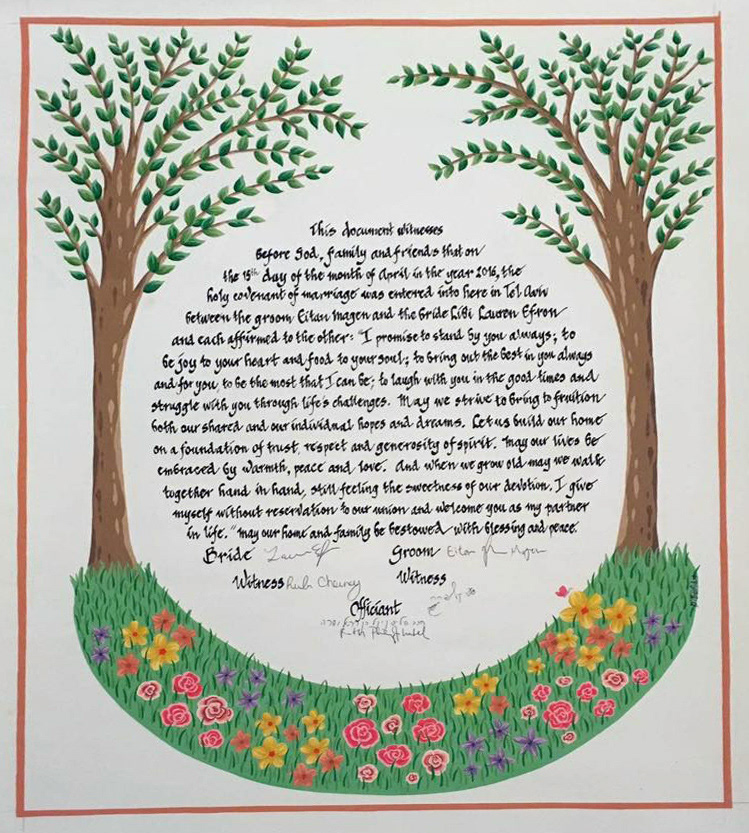 This document witnesses
Before God, family and friends that on
the 15th day of the month of April in the year 2016, the
holy covenant of marriage was entered into here in Tel Aviv
between the groom Eitan Magen and the bride Libi Lauren Efron
and each affirmed to the other: "I promise to stand by you always; to
be joy to your heart and food to your soul; to bring out the best in you always
and for you, to be the most that I can be; to laugh with you in the good times and
struggle with you through life's challenges. May we strive to bring to fruition
both our shared and our individual hopes and dreams. Let us build our home
on a foundation of trust, respect and generosity of spirit. May our lives be
embraced by warmth, peace and love. And when we grow old may we walk
together hand in hand, still feeling the sweetness of our devotion. I give
myself without reservation to our union and welcome you as my partner
in life." May our home and family be bestowed with blessing and peace.
Bride Groom Eitan
Witness Witness
Officiant